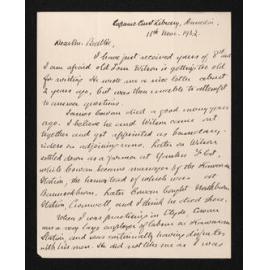 Supreme Court Library, Dunedin,
18th Mar. 1942.
Dear Mr. Beattie,
I have just received yours of 8th and
I am afraid old Tom Wilson is getting too old
for writing. He wrote me a nice letter about
2 years ago, but was then unable to attempt
to answer questions.
James Cowan died a good many years
ago. I believe he and Wilson came out
together and got appointed as boundary
riders on adjoining runs. Later on Wilson
settled down as a farmer at
which Cowan became manager of the Kawarau
Station, the homestead of which was at
Bannockburn. Later Cowan bought Northburn
Station, Cromwell, and I think he died there.
When I was practising in Clyde Cowan
was a very large employer of labour as Kawarau
Station and was continually having disputes
with his men. He did not like me as I was